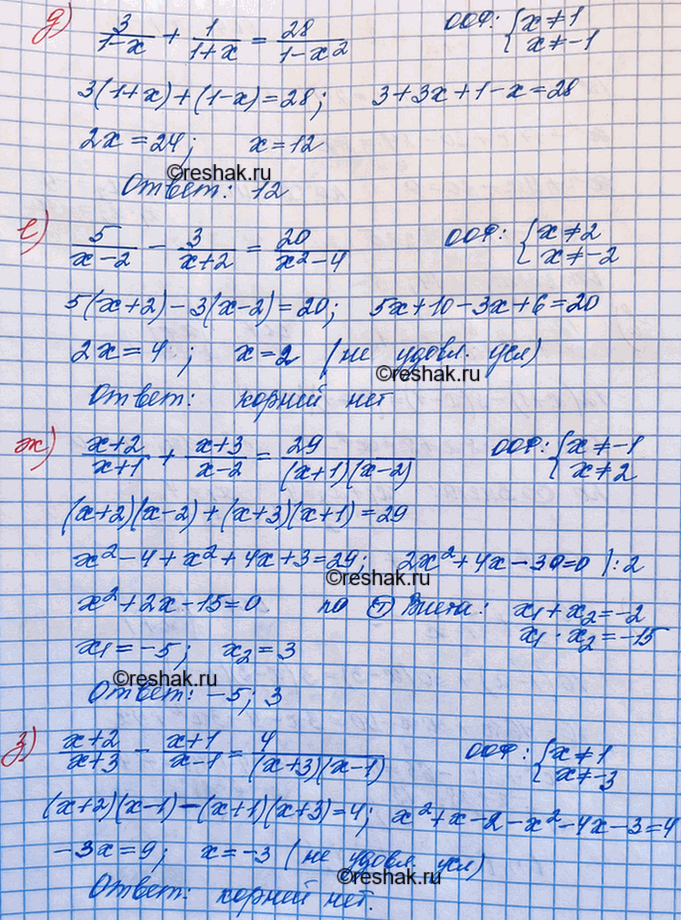 д) 3/(1-x) + 1/(1+x) = 28/(1-x²) ООФ: {x≠1 x≠-1
3(1+x)+(1-x)=28; 3+3x+1-x=28
2x=24; x=12
©reshak.ru
Ответ: 12
е) 5/(x-2) - 3/(x+2) = 20/(x²-4) ООФ: {x≠2 x≠-2
5(x+2)-3(x-2)=20; 5x+10-3x+6=20
2x=4; x=2 (не удовл. усл)
©reshak.ru
Ответ: корней нет
ж) (x+2)/(x+1) + (x+3)/(x-2) = 29/((x+1)(x-2)) ООФ: {x≠-1 x≠2
(x+2)(x-2)+(x+3)(x+1)=29
x²-4+x²+4x+3=29; 2x²+4x-30=0 |:2
©reshak.ru
x²+2x-15=0 по Т Виета: x₁+x₂=-2
x₁·x₂=-15
x₁=-5; x₂=3
©reshak.ru
Ответ: -5; 3
з) (x+2)/(x+3) - (x+1)/(x-1) = 4/((x+3)(x-1)) ООФ: {x≠1 x≠-3
(x+2)(x-1)-(x+1)(x+3)=4; x²+x-2-x²-4x-3=4
-3x=9; x=-3 (не удовл. усл)
©reshak.ru
Ответ: корней нет.